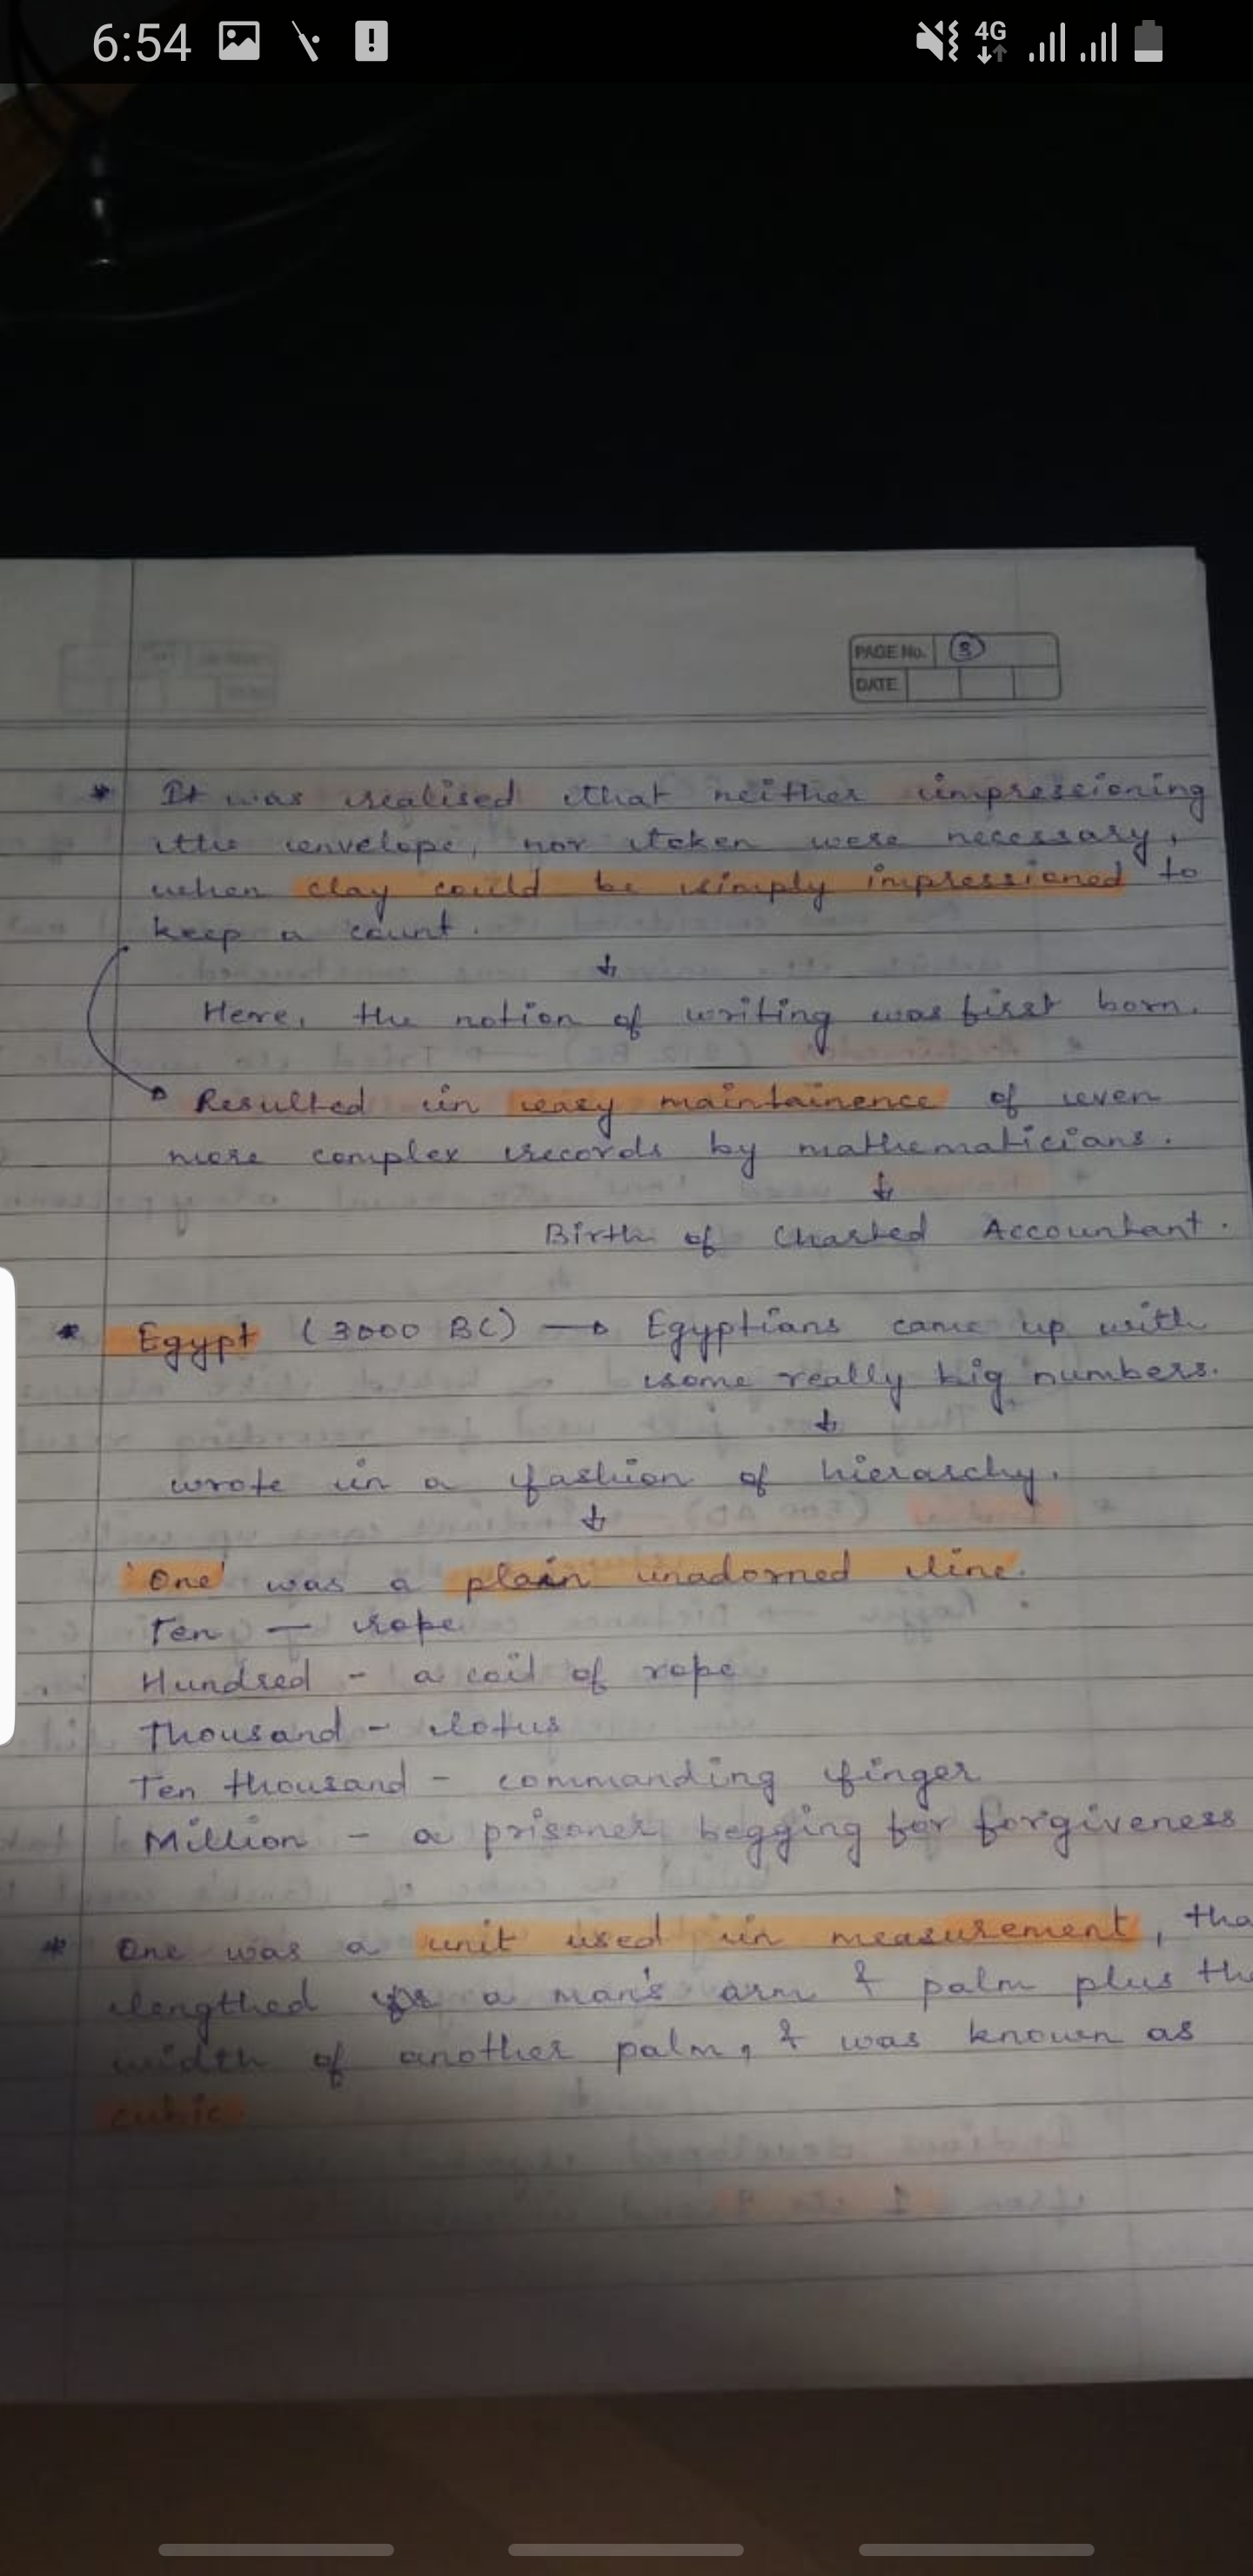 6:54
4G
PAGE No. 3
DATE
* It was realised that neither impressioning
the envelope, nor token were necessary,
when clay could be simply impressioned to
keep a count.
↓
Here, the notion of writing was first born.
→ Resulted in easy maintainence of even
more complex records by mathematicians.
↓
Birth of Charted Accountant.
* Egypt (3000 BC) → Egyptians came up with
some really big numbers.
↓
wrote in a fashion of hierarchy.
↓
'One' was a plain unadorned line.
Ten — rope
Hundred - a coil of rope
Thousand - lotus
Ten thousand - commanding finger
Million - a prisoner begging for forgiveness
* One was a unit used in measurement, tha
lengthed a man's arm & palm plus the
width of another palm, & was known as
cubic